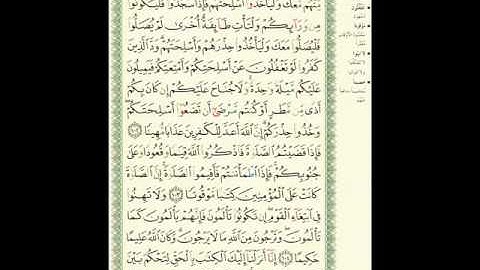 مِّنْهُم مَّعَكَ وَلْيَأْخُذُوٓا۟ أَسْلِحَتَهُمْ فَإِذَا سَجَدُوا۟ فَلْيَكُونُوا۟
مِن وَرَآئِكُمْ وَلْتَأْتِ طَآئِفَةٌ أُخْرَىٰ لَمْ يُصَلُّوا۟
فَلْيُصَلُّوا۟ مَعَكَ وَلْيَأْخُذُوا۟ حِذْرَهُمْ وَأَسْلِحَتَهُمْ ۗ وَدَّ ٱلَّذِينَ
كَفَرُوا۟ لَوْ تَغْفُلُونَ عَنْ أَسْلِحَتِكُمْ وَأَمْتِعَتِكُمْ فَيَمِيلُونَ
عَلَيْكُم مَّيْلَةً وَٰحِدَةً ۚ وَلَا جُنَاحَ عَلَيْكُمْ إِن كَانَ بِكُمْ
أَذًى مِّن مَّطَرٍ أَوْ كُنتُم مَّرْضَىٰٓ أَن تَضَعُوٓا۟ أَسْلِحَتَكُمْ ۖ
وَخُذُوا۟ حِذْرَكُمْ ۗ إِنَّ ٱللَّهَ أَعَدَّ لِلْكَٰفِرِينَ عَذَابًا مُّهِينًا ١٠٢
فَإِذَا قَضَيْتُمُ ٱلصَّلَوٰةَ فَٱذْكُرُوا۟ ٱللَّهَ قِيَٰمًا وَقُعُودًا وَعَلَىٰ
جُنُوبِكُمْ ۚ فَإِذَا ٱطْمَأْنَنتُمْ فَأَقِيمُوا۟ ٱلصَّلَوٰةَ ۚ إِنَّ ٱلصَّلَوٰةَ
كَانَتْ عَلَى ٱلْمُؤْمِنِينَ كِتَٰبًا مَّوْقُوتًا ١٠٣ وَلَا تَهِنُوا۟
فِى ٱبْتِغَآءِ ٱلْقَوْمِ ۖ إِن تَكُونُوا۟ تَأْلَمُونَ فَإِنَّهُمْ يَأْلَمُونَ كَمَا
تَأْلَمُونَ ۖ وَتَرْجُونَ مِنَ ٱللَّهِ مَا لَا يَرْجُونَ ۗ وَكَانَ ٱللَّهُ عَلِيمًا
حَكِيمًا ١٠٤ إِنَّآ أَنزَلْنَآ إِلَيْكَ ٱلْكِتَٰبَ بِٱلْحَقِّ لِتَحْكُمَ بَيْنَ